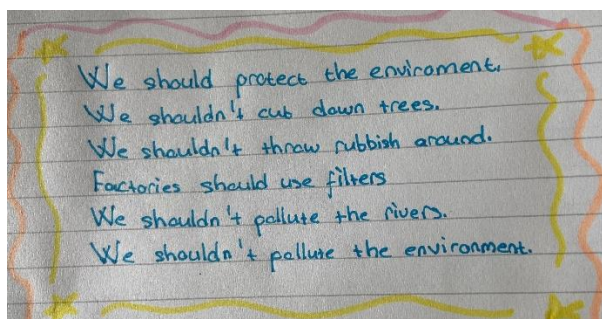 We should protect the enviroment.
We shouldn't cut down trees.
We shouldn't throw rubbish around.
Factories should use filters
We shouldn't pollute the rivers.
We shouldn't pollute the environment.